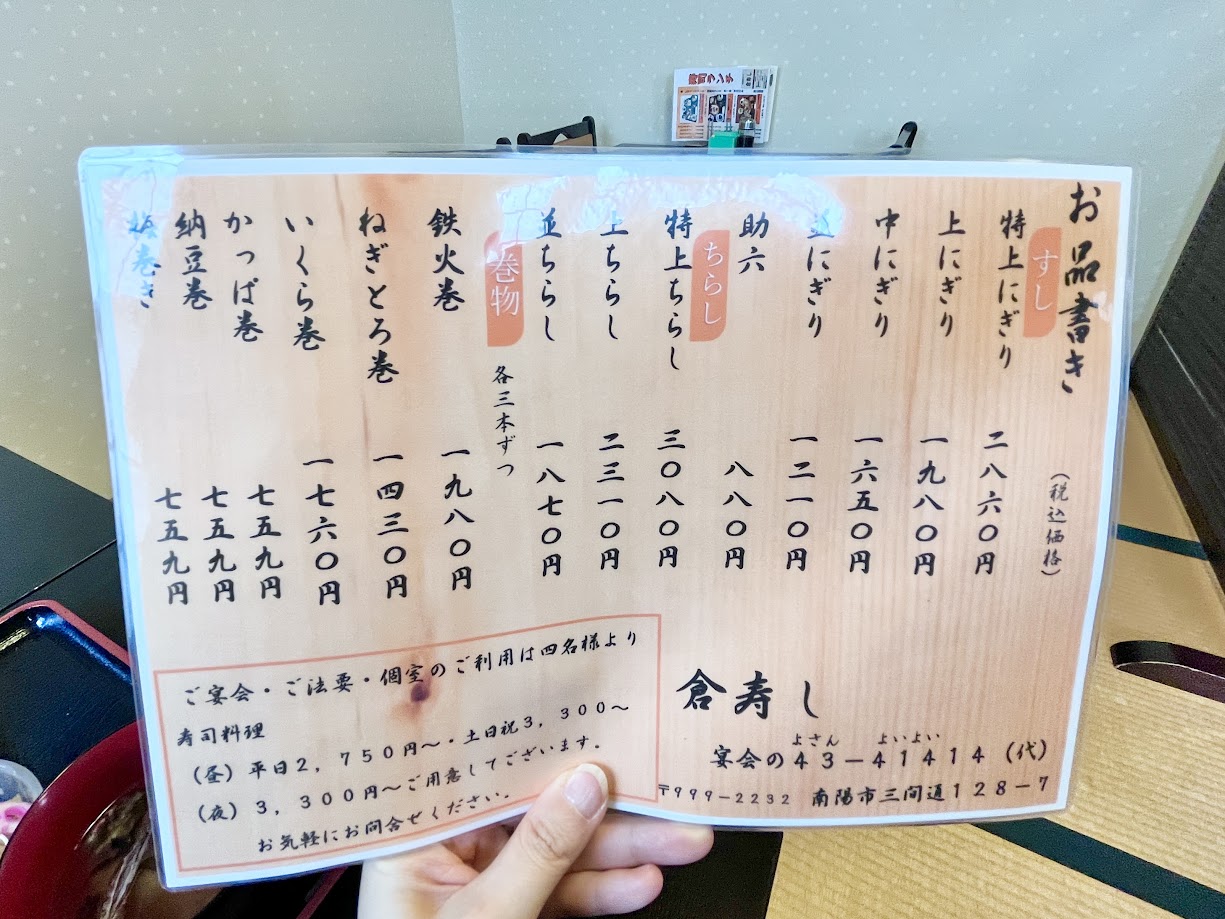 お品書き
すし
(税込価格)
特上にぎり 二八六〇円
上にぎり 一九八〇円
中にぎり 一六五〇円
並にぎり 一二一〇円
助六 八八〇円
ちらし
特上ちらし 三〇八〇円
上ちらし 二三一〇円
並ちらし 一八七〇円
巻物 各三本ずつ
鉄火巻 一九八〇円
ねぎとろ巻 一四三〇円
いくら巻 一七六〇円
かっぱ巻 七五九円
納豆巻 七五九円
巻き 七五九円
ご宴会・ご法要・個室のご利用は四名様より
寿司料理
(昼)平日2,750円～・土日祝3,300～
(夜)3,300円～ご用意してございます。
お気軽にお問合せください。
倉寿し
よさん よいよい
宴会の43－41414(代)
〒999－2232 南陽市三間通128－7